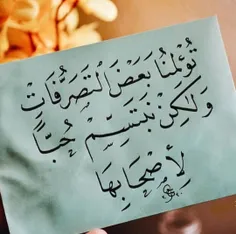 تُؤلِمُنَا بَعْضَ التَصَرُّفَاتِ
وَلَكِنْ نَبْتَسِمْ حُبّاً
لأَصْحَابِهَا